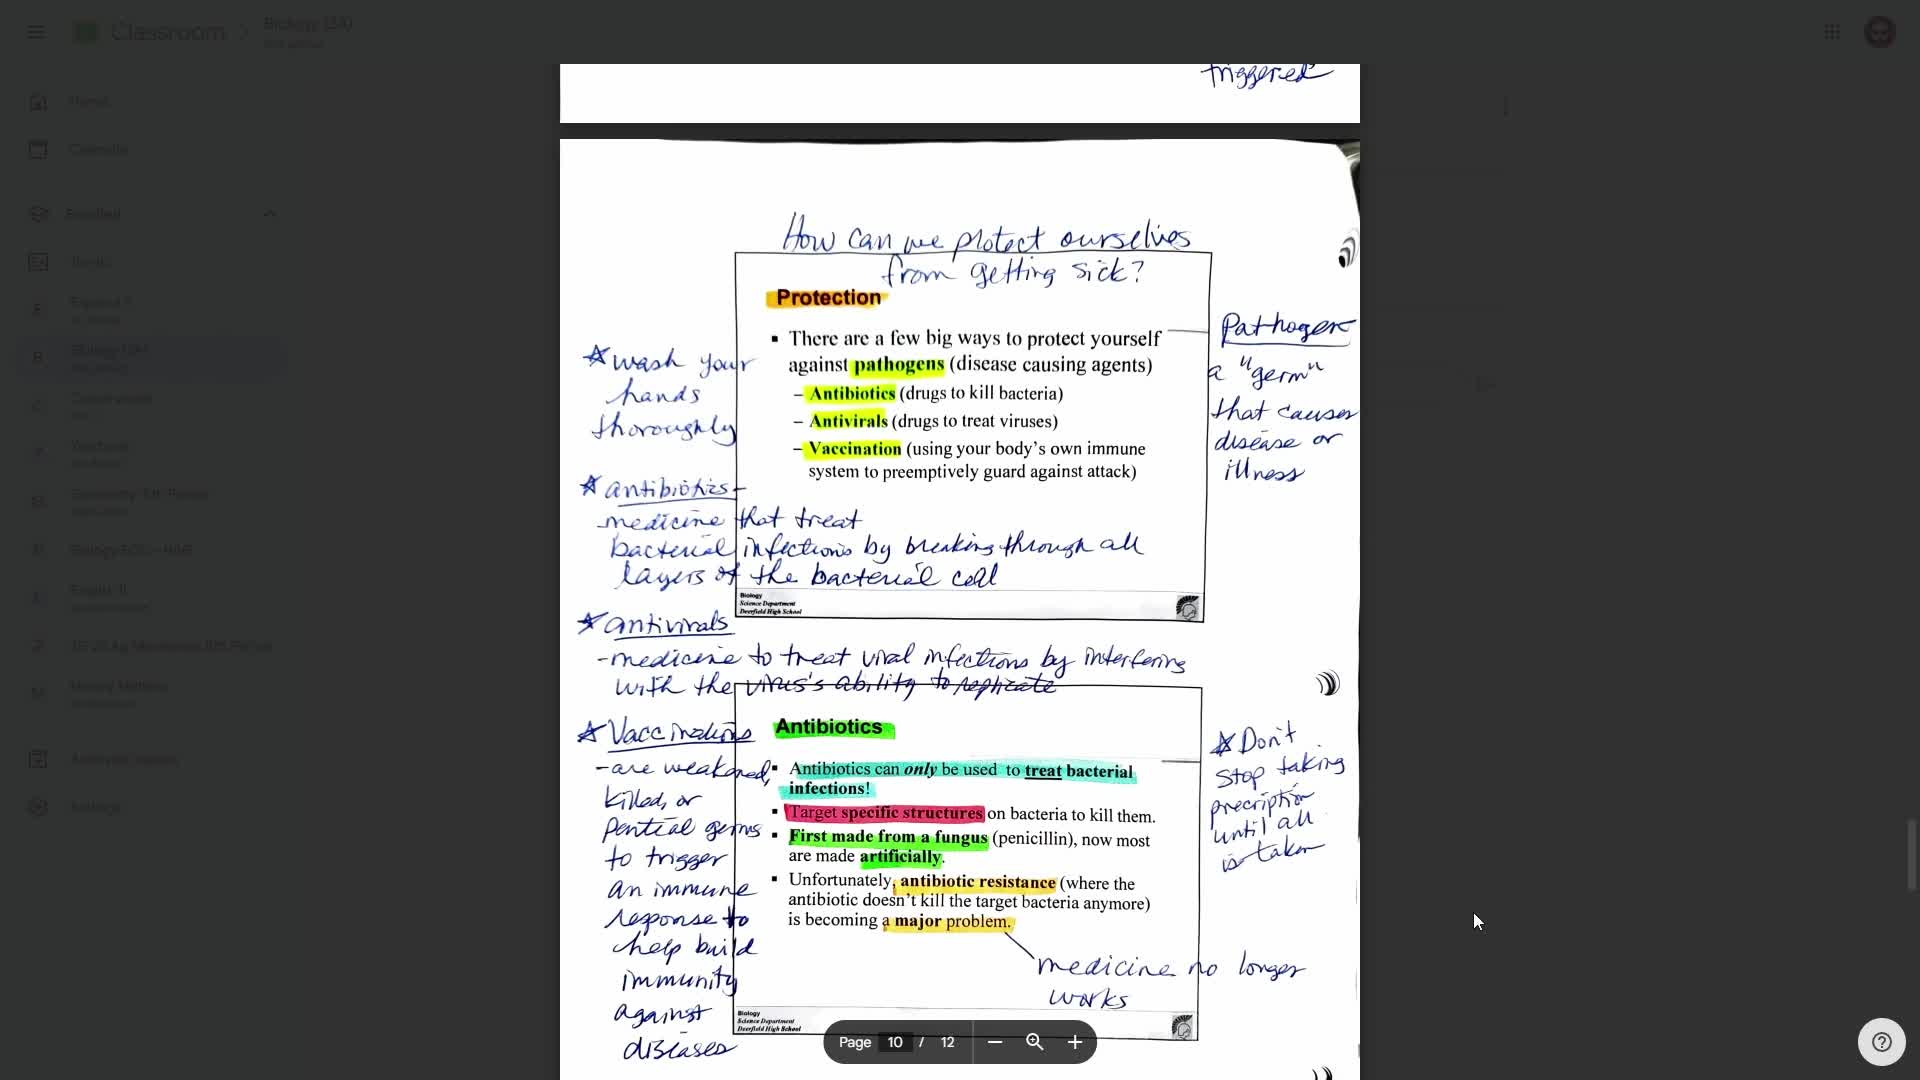 Classroom
Biology (3A)
triggered
Home
Calendar
Enrolled
How can we protect ourselves
from getting sick?
Protection
▪ There are a few big ways to protect yourself
against pathogens (disease causing agents)
– Antibiotics (drugs to kill bacteria)
– Antivirals (drugs to treat viruses)
– Vaccination (using your body's own immune
system to preemptively guard against attack)
Biology
Science Department
Deerfield High School
☆ wash your
hands
thoroughly
☆ antibiotics-
-medicine that treat
bacterial infections by breaking through all
layers of the bacterial cell
☆ antivirals
-medicine to treat viral infections by interfering
with the virus's ability to replicate
Pathogen
a "germ"
that causes
disease or
illness
☆ Vaccinations
-are weakened,
killed, or
germs
to trigger
an immune
response to
help build
immunity
against
diseases
Antibiotics
▪ Antibiotics can only be used to treat bacterial
infections!
▪ Target specific structures on bacteria to kill them.
▪ First made from a fungus (penicillin), now most
are made artificially.
▪ Unfortunately, antibiotic resistance (where the
antibiotic doesn't kill the target bacteria anymore)
is becoming a major problem.
medicine no longer
works
Biology
Science Department
Deerfield High School
☆ Don't
stop taking
precription
until all
is taken
Page 10 / 12